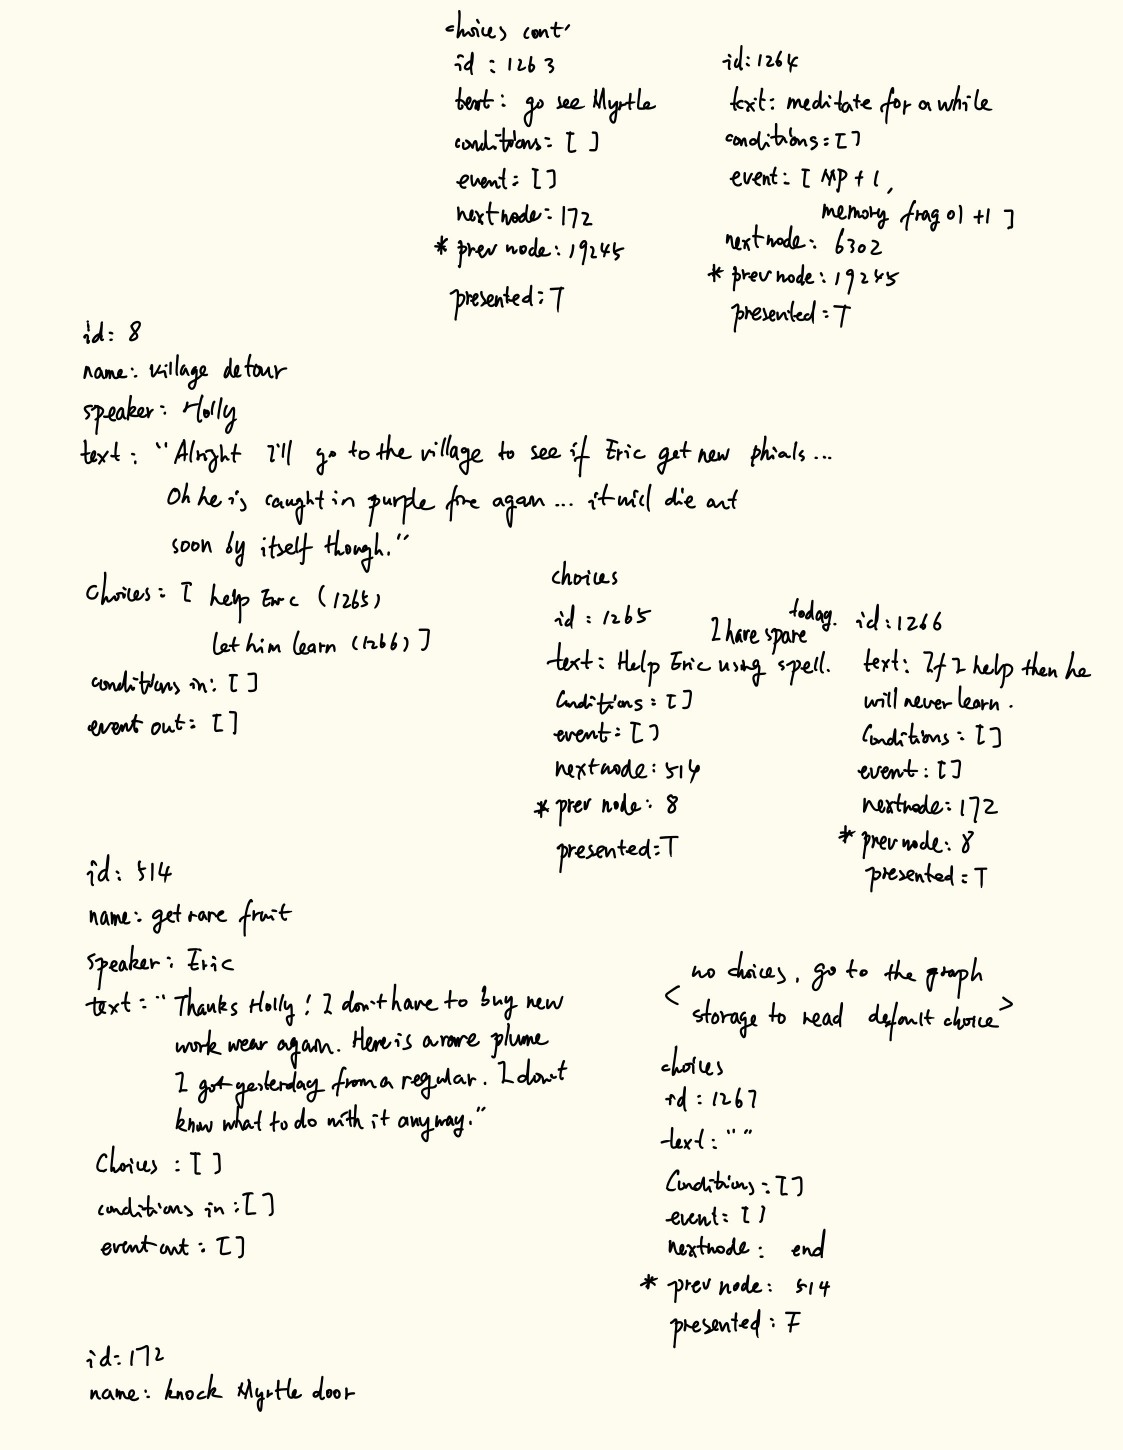 choices cont'
id : 1263
text: go see Myrtle
conditions: [ ]
event: []
next node: 172
* prev node: 19245
presented: T
id: 1264
text: meditate for a while
conditions: []
event: [ MP + 1,
memory frag 01 +1 ]
next node: 6302
* prev node: 19245
presented: T
id: 8
name: village detour
speaker: Holly
text: "Alright I'll go to the village to see if Eric get new phials...
Oh he is caught in purple fire again... it will die out
soon by itself though."
choices: [ help Eric (1265)
let him learn (1266) ]
conditions in: [ ]
event out: [ ]
choices
id : 1265
I have spare today.
text: Help Eric using spell.
Conditions: []
event: []
next node: 514
* prev node: 8
presented: T
id: 1266
text: If I help then he
will never learn.
Conditions: []
event: []
next node: 172
* prev node: 8
presented: T
id: 514
name: get rare fruit
speaker: Eric
text: "Thanks Holly! I don't have to buy new
work wear again. Here is a rare plume
I got yesterday from a regular. I don't
know what to do with it anyway."
Choices : [ ]
conditions in: [ ]
event out: [ ]
< no choices, go to the graph
storage to read default choice >
choices
id : 1267
text: " "
Conditions: []
event: []
next node: end
* prev node: 514
presented: F
id: 172
name: knock Myrtle door